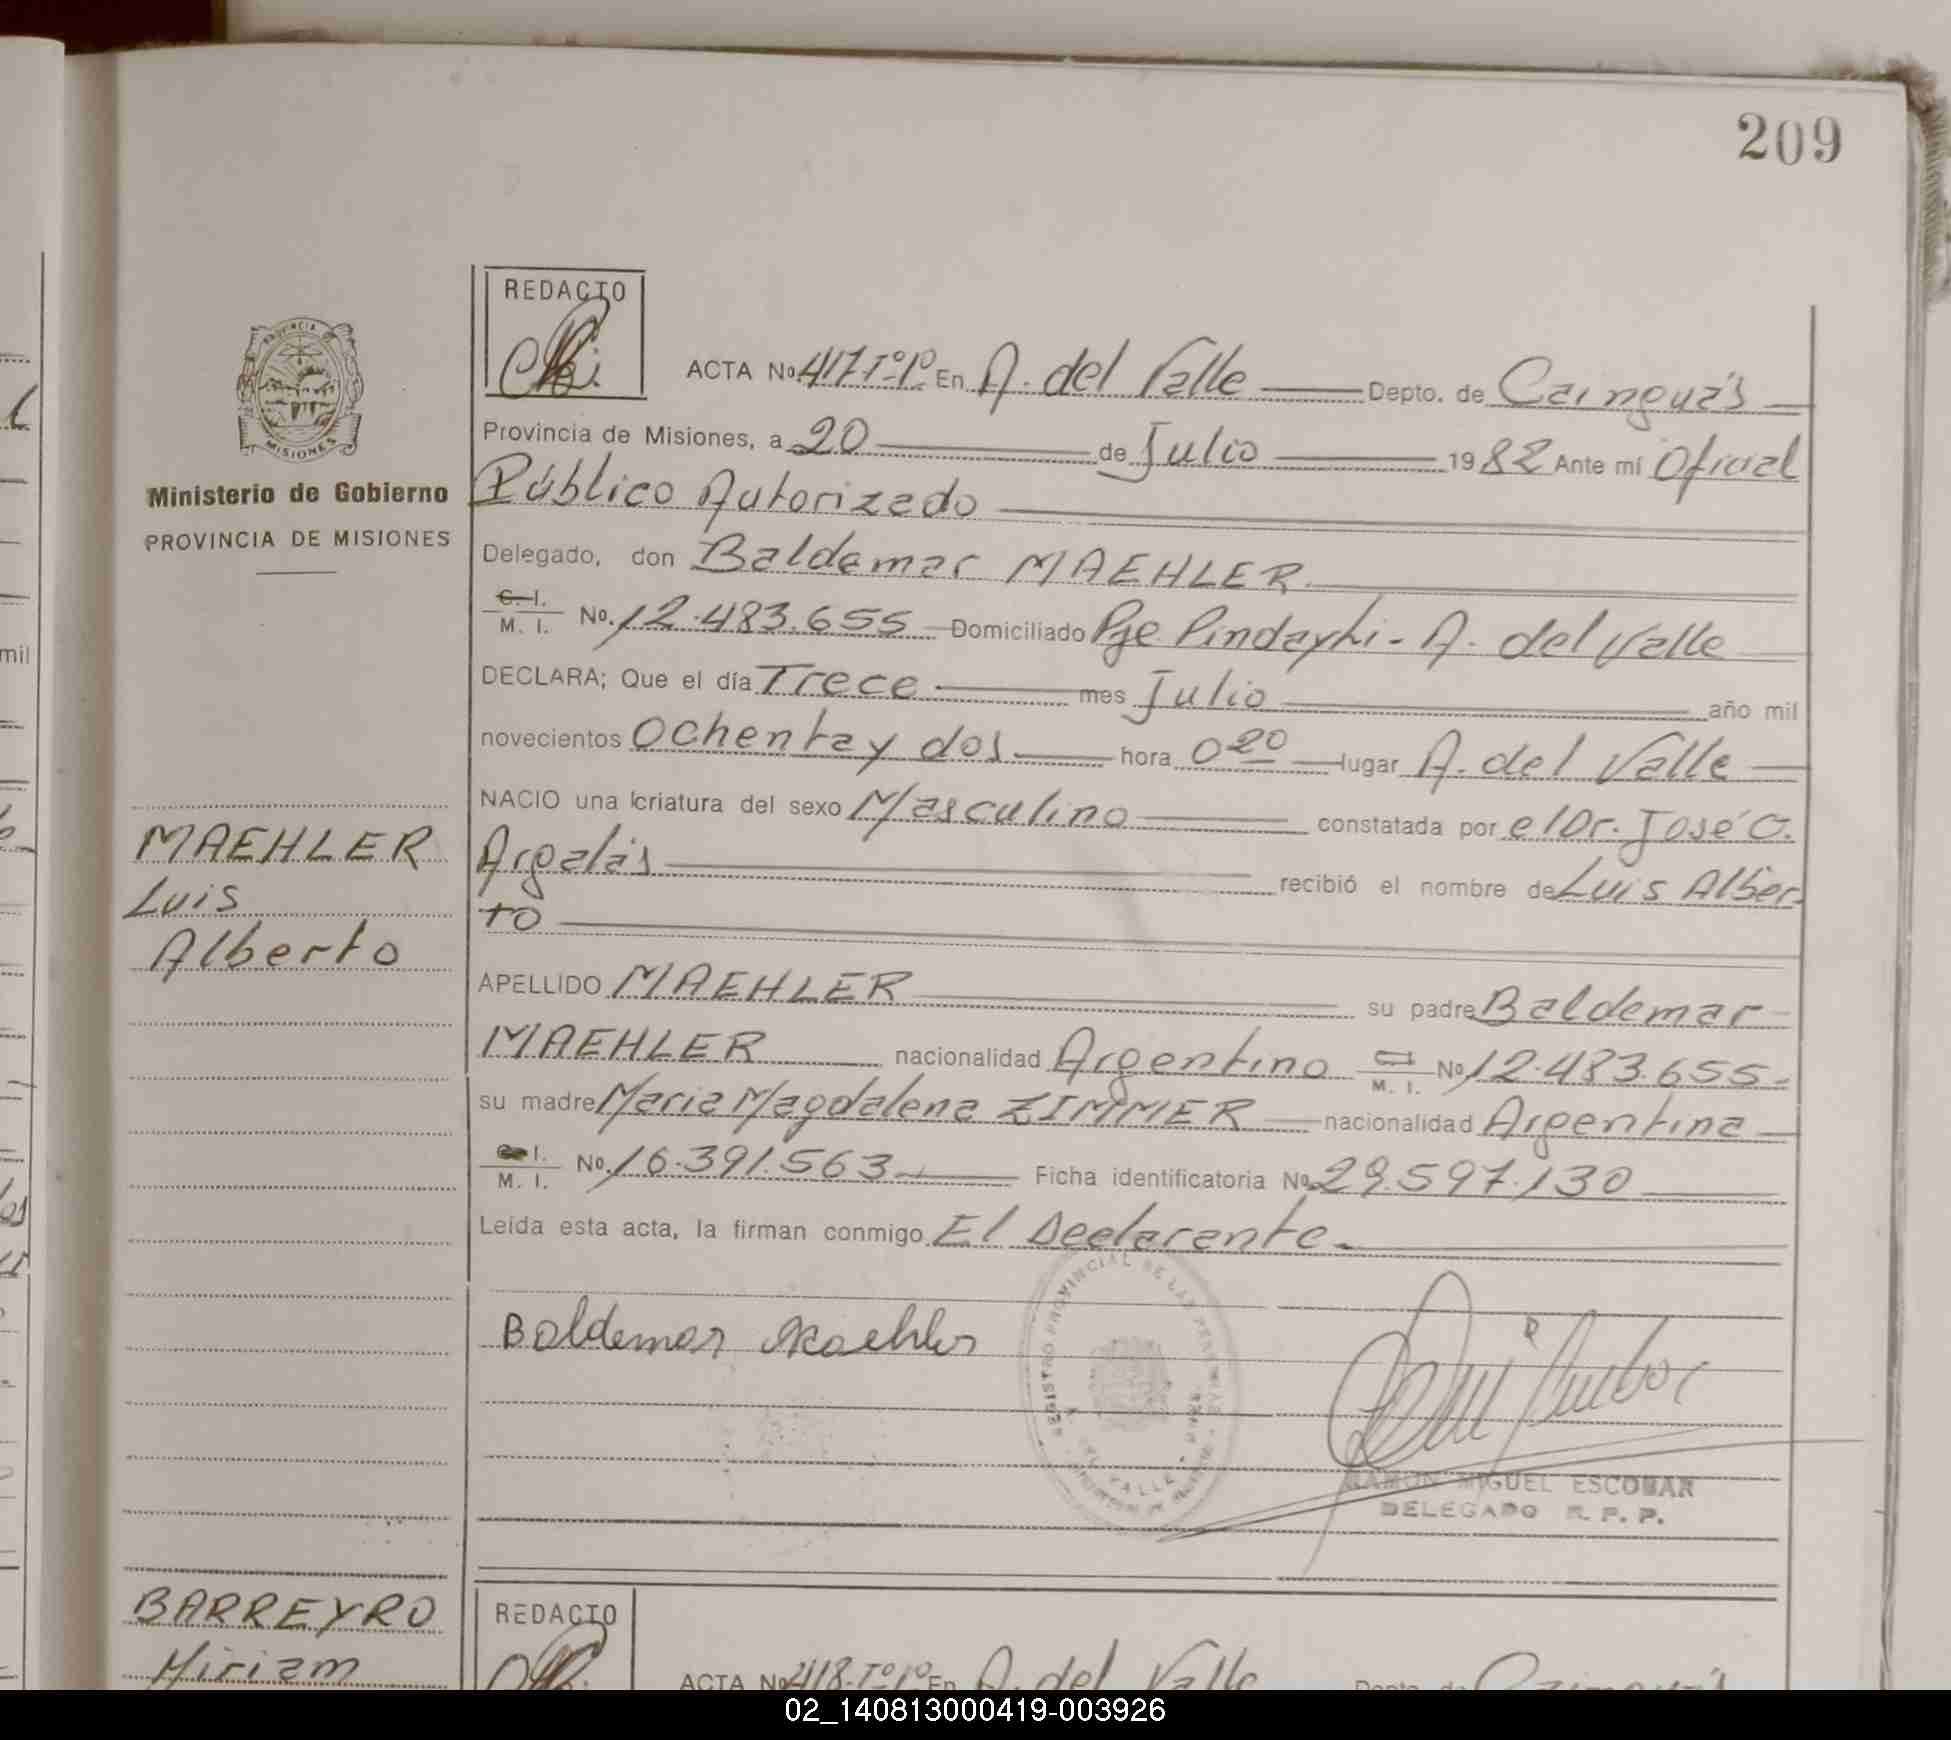 209
REDACTO
PROVINCIA
MISIONES
Ministerio de Gobierno
PROVINCIA DE MISIONES
ACTA No. 417 Tº 1º En A. del Valle Depto. de Cainguás
Provincia de Misiones, a 20 de Julio 1982 Ante mí Oficial
Público Autorizado
Delegado, don Baldemar MAEHLER
C. I.
M. I. No. 12.483.655 Domiciliado Pje Pindayti - A. del Valle
DECLARA; Que el día Trece mes Julio año mil
novecientos Ochenta y dos hora 0 20 lugar A. del Valle
NACIO una criatura del sexo Masculino constatada por el Dr. José O.
Argalás recibió el nombre de Luis Alber-
to
MAEHLER
Luis
Alberto
APELLIDO MAEHLER su padre Baldemar
MAEHLER nacionalidad Argentino C I M. I. No. 12.483.655-
su madre Maria Magdalena ZIMMER nacionalidad Argentina
C. I.
M. I. No. 16.391.563 Ficha identificatoria No. 29.597.130
Leída esta acta, la firman conmigo El Declarante.
Baldemar Maehler
REGISTRO PROVINCIAL DE LAS PERSONAS
DEL VALLE
RAMON MIGUEL ESCOBAR
DELEGADO R. P. P.
BARREYRO
Miriam
REDACTO
ACTA No. 418 Tº 1º En A. del Valle Depto. de Cainguás
mil
02_140813000419-003926